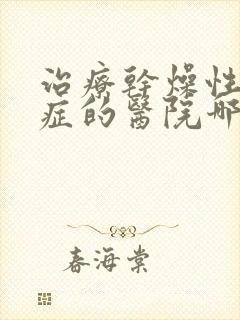 治療幹燥性
症的醫院哪
春海棠